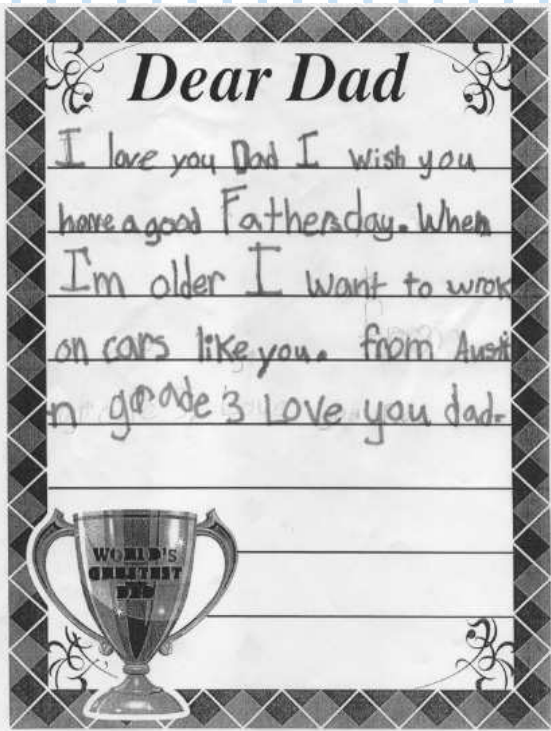 Dear Dad
I love you Dad I wish you
have a good Fathersday. When
I'm older I want to wrok
on cars like you. from Austi
n grade 3 Love you dad.
WORLD'S
GREATEST
DAD